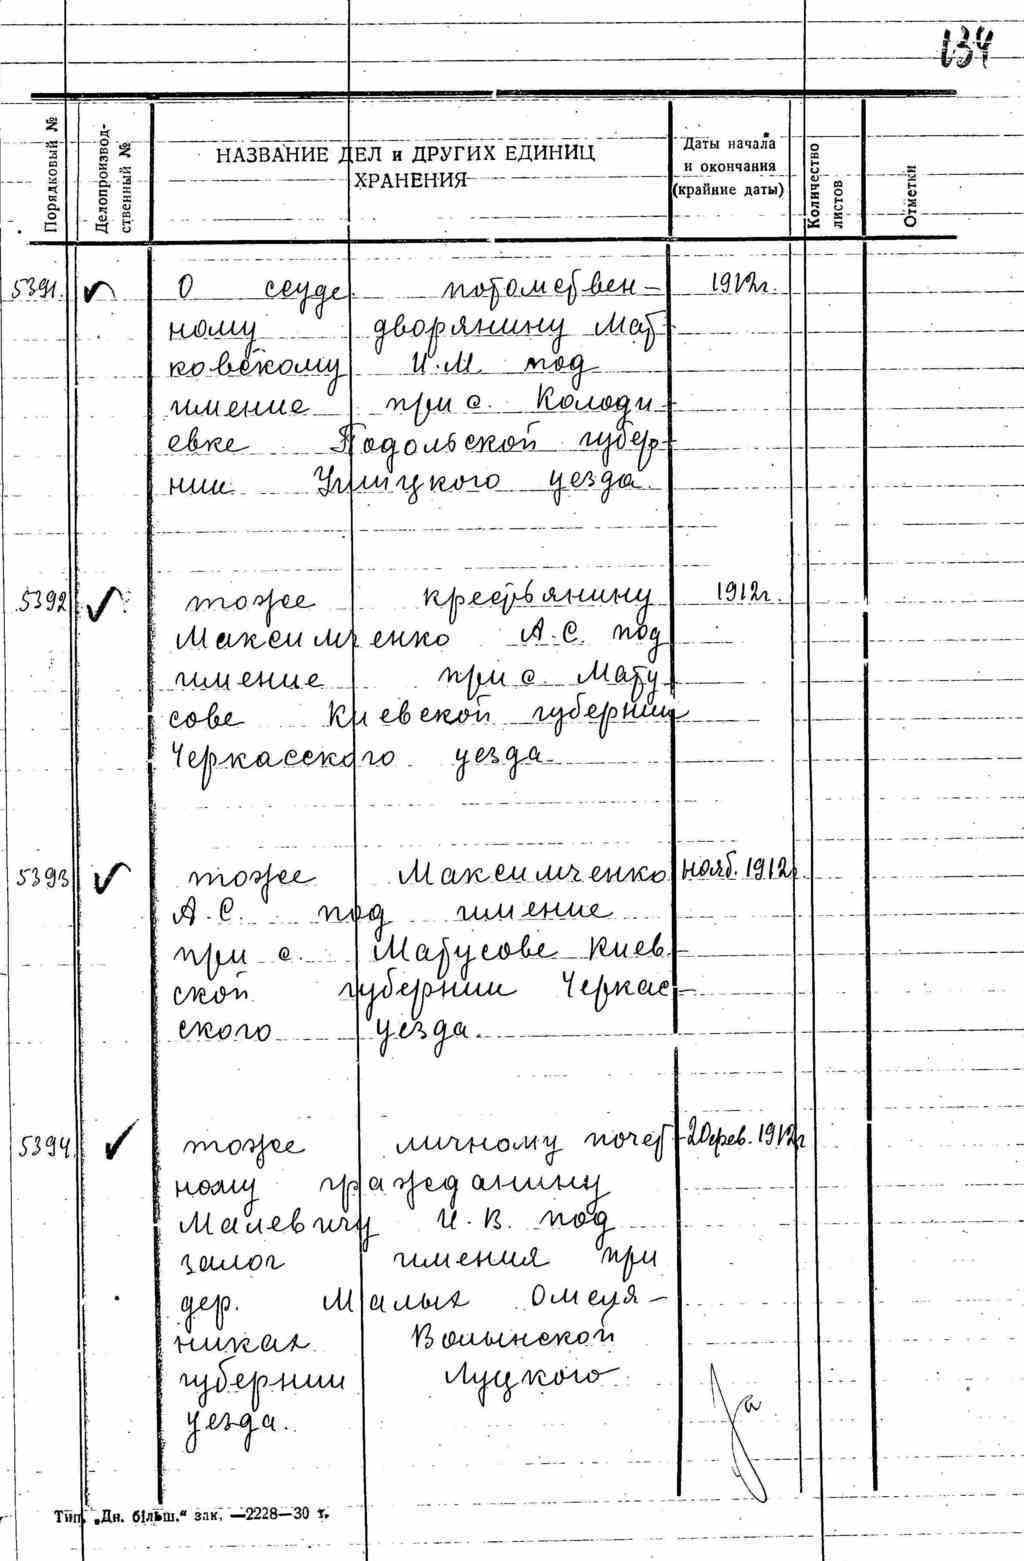 134
Порядковый №
Делопроизвод-
ственный №
НАЗВАНИЕ ДЕЛ и ДРУГИХ ЕДИНИЦ
ХРАНЕНИЯ
Даты начала
и окончания
(крайние даты)
Количество
листов
Отметки
5391. О ссуде потомствен- 1912г.
ному дворянину Мат
ковскому И.М. под
имение при с. Колоди
евке Подольской губер-
нии Ушицкого уезда.
5392 тоже крестьянину 1912г.
Максимченко А.С. под
имение при с. Мату
сове Киевской губернии
Черкасского уезда.
5393 тоже Максимченко нояб. 1912г
А.С. под имение
при с. Матусове Киев
ской губернии Черкас-
ского уезда.
5394. тоже личному почет 20фев. 1912г
ному гражданину
Малевичу И.В. под
залог имения при
дер. Малых Омеля-
никах Волынской
губернии Луцкого
уезда.
Тип. „Дн. більш.“ зак. —2228—30 т.